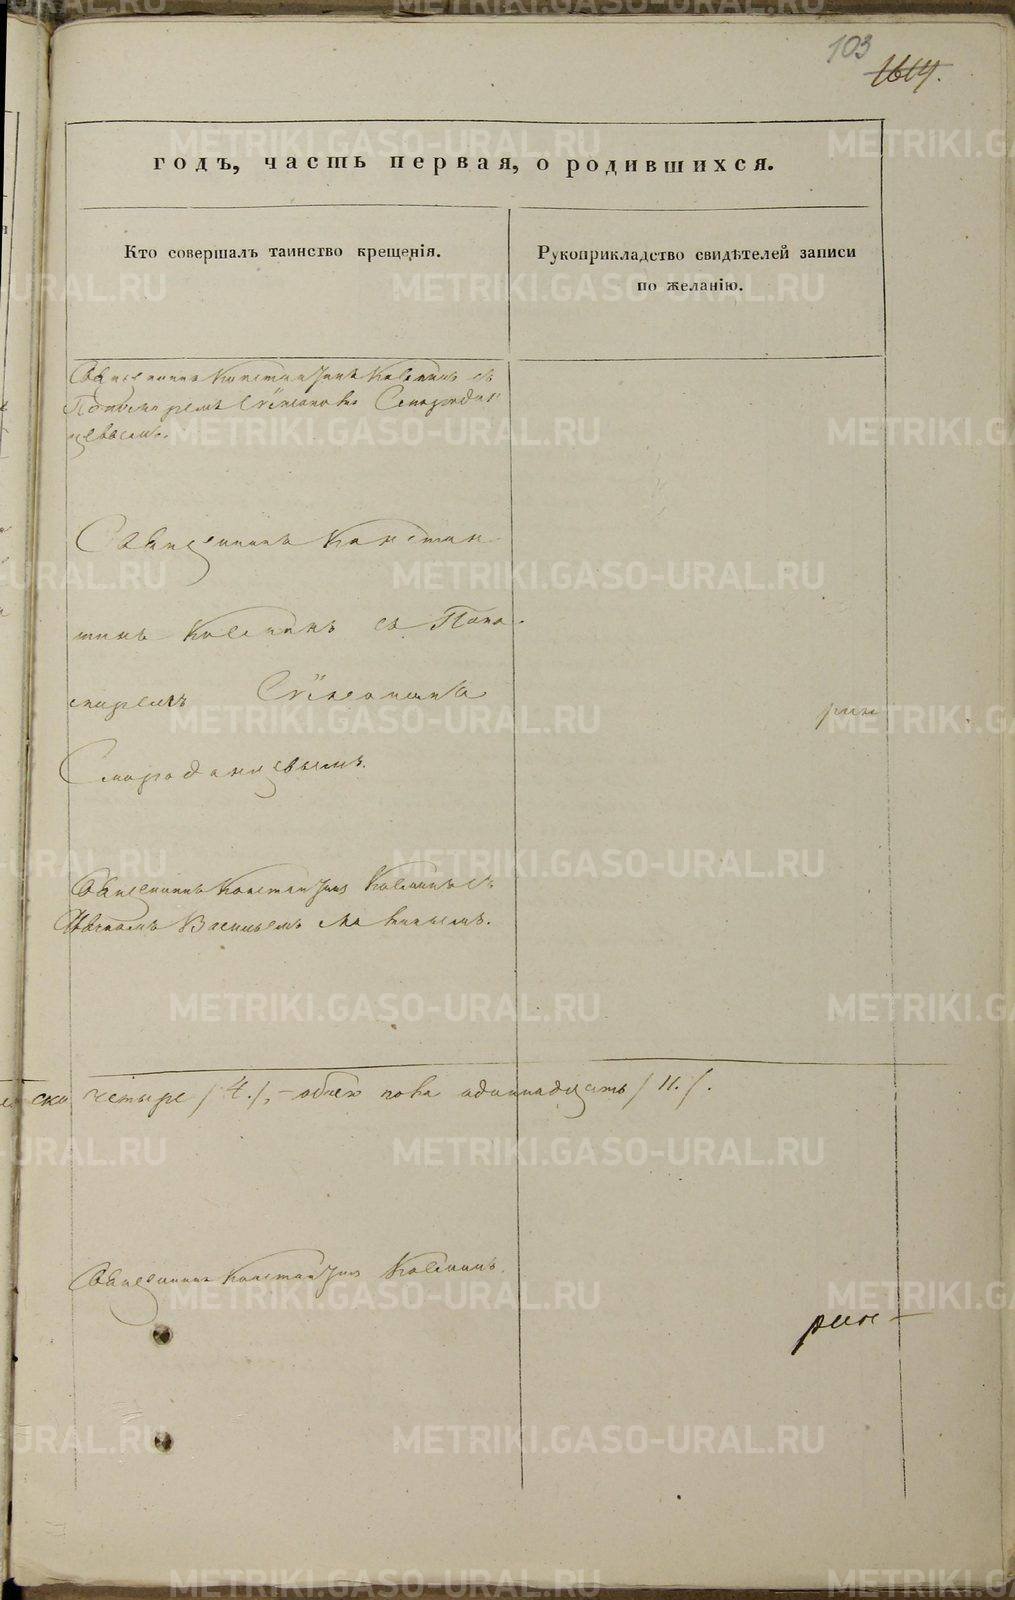 103
1614.
годъ, часть первая, о родившихся.
Кто совершалъ таинство крещенія.
Рукоприкладство свидѣтелей записи
по желанію.
Священникъ Константинъ съ
Пономаремъ Сѵмеономъ Смородин
цевымъ.
Священникъ Констан
тинъ съ Поно-
маремъ Сѵмеономъ
Смородинцевымъ.
Священникъ Константинъ съ
Васильемъ
четыре /4./, - обоего пола одиннадцать /11./.
Священникъ Константинъ
METRIKI.GASO-URAL.RU